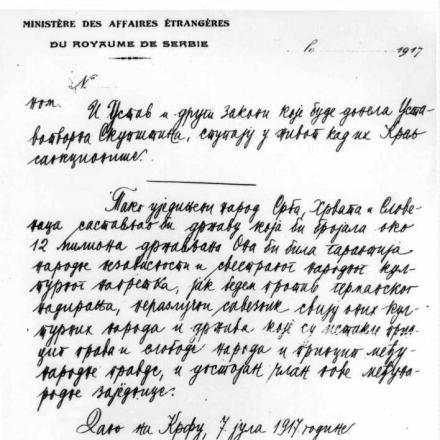 MINISTÈRE DES AFFAIRES ÉTRANGÈRES
DU ROYAUME DE SERBIE
le 1917
№
ном. И Устав и други закони које буде донела Уста-
вотворна Скупштина, ступају у живот кад их Краљ
санкционише.
Тако уједињени народ Срба, Хрвата и Слове-
наца састављао би државу која би бројала око
12 милиона држављана. Она би била гарантија
народне независности и свестраног народног кул-
турног напретка, јак бедем против германског
надирања, неразлучни савезник свију оних кул-
турних народа и држава које су истакле прин-
цип права и слободе народа и принцип међу-
народне правде, и достојан члан нове међуна-
родне заједнице.
Дано на Крфу, 7 јула 1917 године